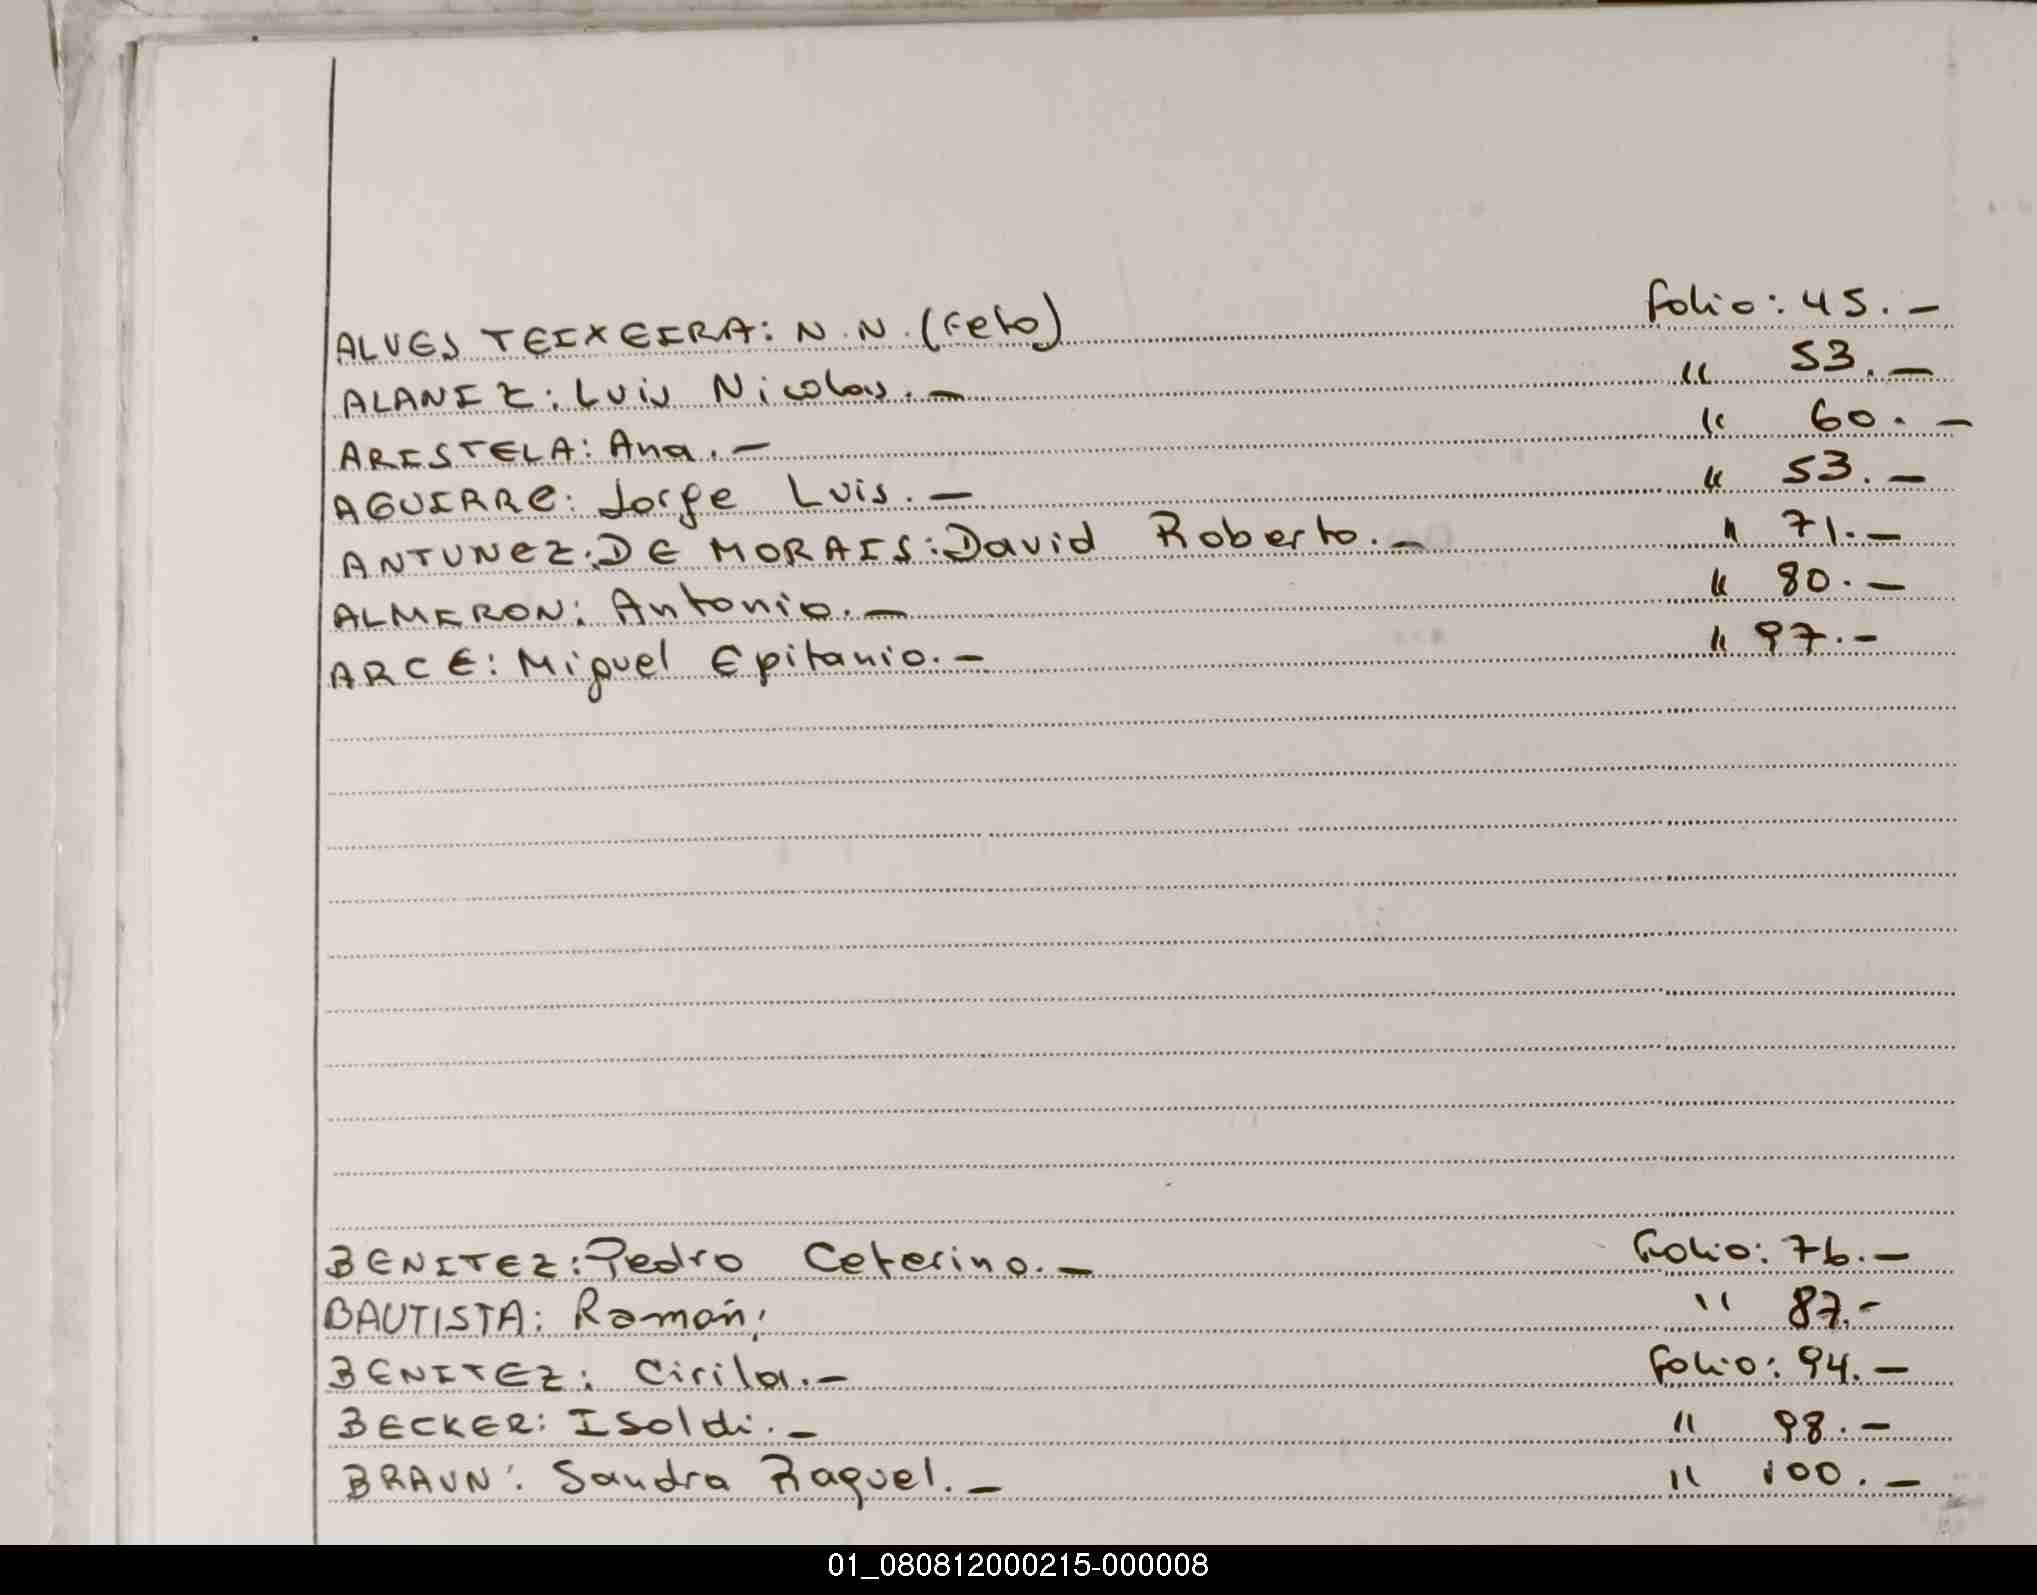 ALVES TEIXEIRA: N.N. (Feto) Folio: 45.-
ALANIZ: Luis Nicolas.- " 53.-
ARISTELA: Ana.- " 60.-
AGUIRRE: Jorge Luis.- " 53.-
ANTUNEZ: DE MORAIS: David Roberto.- " 71.-
ALMIRON: Antonio.- " 80.-
ARCE: Miguel Epifanio.- " 97.-
BENITEZ: Pedro Ceferino.- Folio: 76.-
BAUTISTA: Ramón, " 87.-
BENITEZ: Cirila.- Folio: 94.-
BECKER: Isoldi.- " 98.-
BRAUN: Sandra Raquel.- " 100.-
01_080812000215-000008